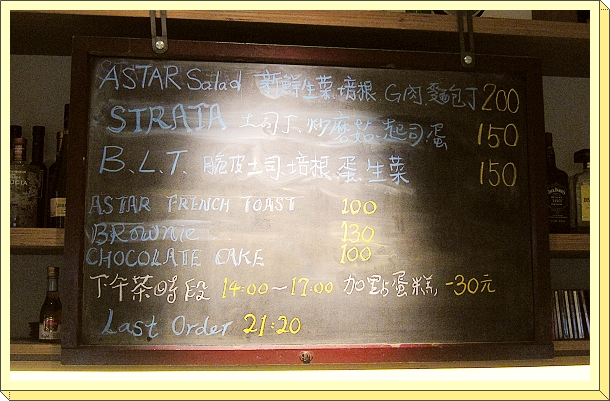 ASTAR Salad 新鮮生菜.培根 G肉 麵包丁 200
STRATA 土司丁.炒蘑菇.起司.蛋 150
B.L.T. 脆皮土司.培根.蛋.生菜 150
ASTAR FRENCH TOAST 100
BROWNIE 130
CHOCOLATE CAKE 100
下午茶時段 14:00~17:00 加點蛋糕, -30元
Last Order 21:20